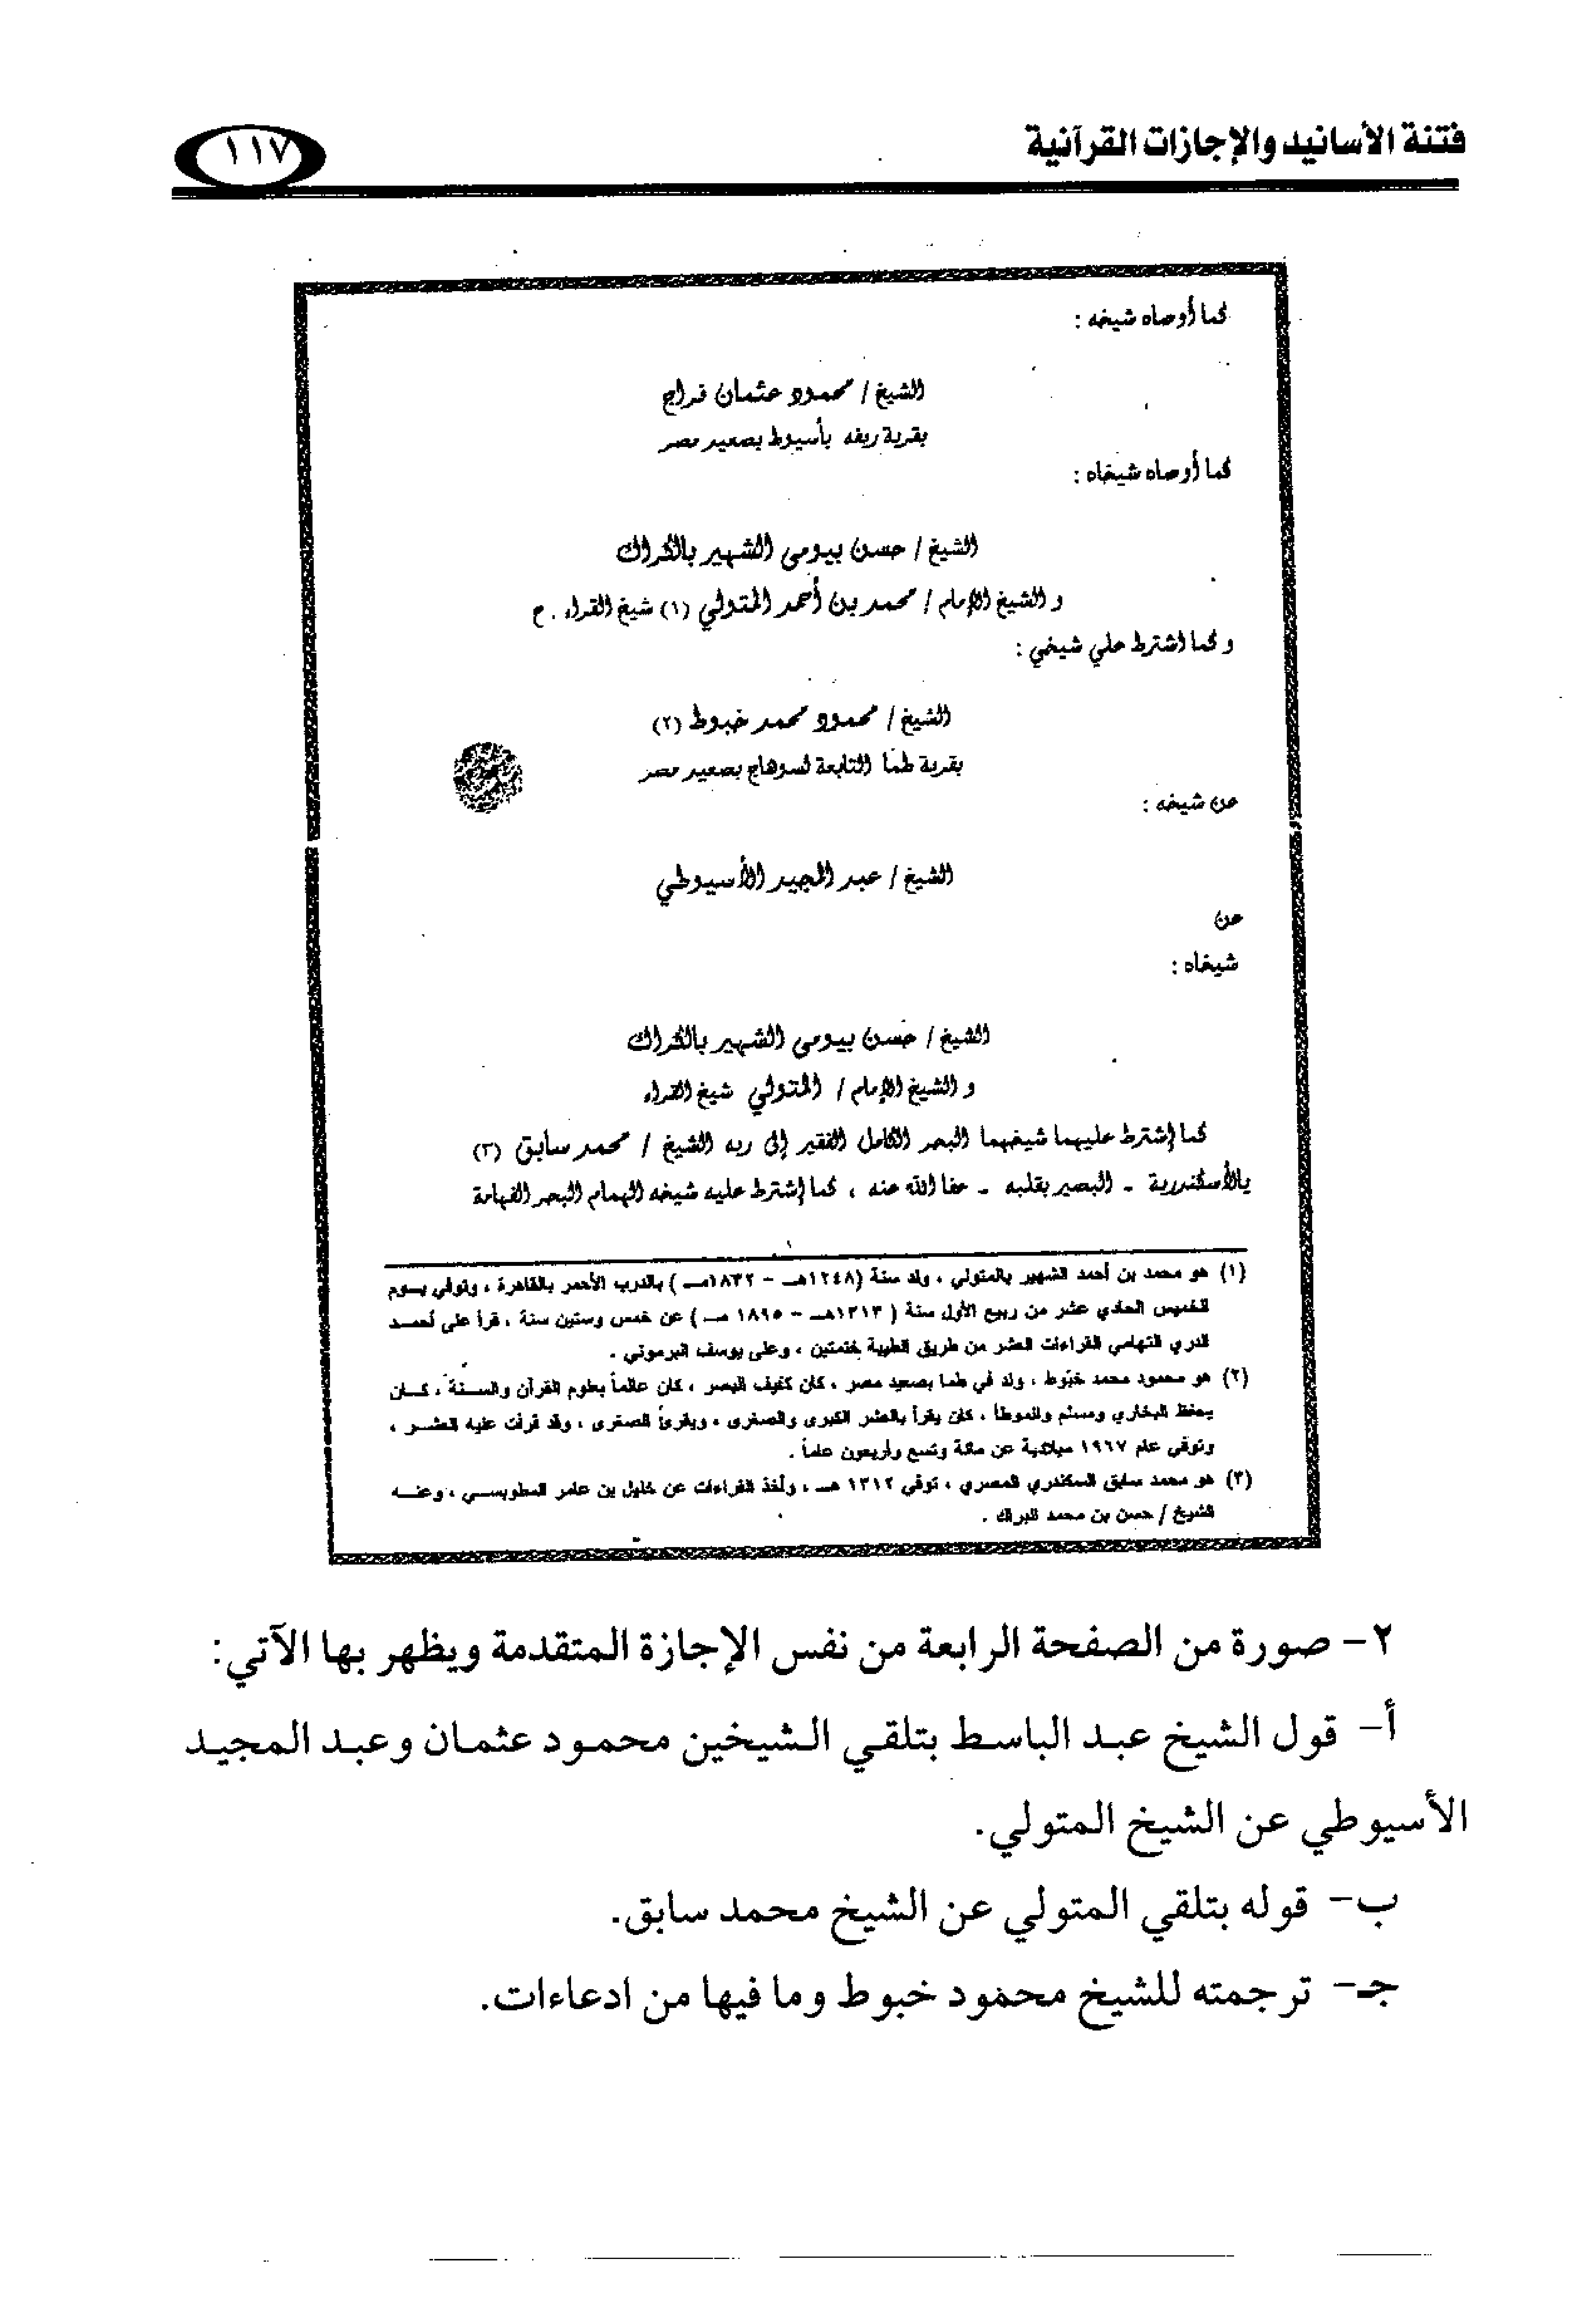 فتنة الأسانيد والإجازات القرآنية
١١٧
كما أوصاه شيخه :
الشيخ / محمود عثمان فراج
بقرية ريفه بأسيوط بصعيد مصر
كما أوصاه شيخاه :
الشيخ / حسن بيومى الشهير بالكراك
و الشيخ الإمام / محمد بن أحمد المتولي (١) شيخ القراء . ح
و كما اشترط علي شيخي :
الشيخ / محمود محمد خبوط (٢)
بقرية طما التابعة لسوهاج بصعيد مصر
عن شيخه :
الشيخ / عبد المجيد الأسيوطي
عن
شيخاه :
الشيخ / حسن بيومى الشهير بالكراك
و الشيخ الإمام / المتولي شيخ القراء
كما إشترط عليهما شيخهما البحر الكامل الفقير إلى ربه الشيخ / محمد سابق (٣)
بالأسكندرية - البصير بقلبه - عفا الله عنه ، كما إشترط عليه شيخه الهمام البحر الفهامة
(١) هو محمد بن أحمد الشهير بالمتولي ، ولد سنة (١٢٤٨هـ - ١٨٣٢مـ) بالدرب الأحمر بالقاهرة ، وتوفي يوم
الخميس الحادي عشر من ربيع الأول سنة ( ١٣١٣هـ - ١٨٩٥ مـ) عن خمس وستين سنة ، قرأ على أحمد
الدري التهامي القراءات العشر من طريق الطيبة ختمتين ، وعلى يوسف البرموني .
(٢) هو محمود محمد خبوط ، ولد في طما بصعيد مصر ، كان كفيف البصر ، كان عالماً بعلوم القرآن والسنة ، كان
يحفظ البخاري ومسلم والموطأ ، كان يقرأ بالعشر الكبرى والصغرى ، ويقرئ الصغرى ، وقد قرأت عليه العشر ،
وتوفي عام ١٩٦٧ ميلادية عن مائة وتسع وأربعون عاماً .
(٣) هو محمد سابق السكندري المصري ، توفي ١٣١٢ هـ ، وأخذ القراءات عن خليل بن عامر المطوبسي ، وعنه
الشيخ / حسن بن محمد
٢- صورة من الصفحة الرابعة من نفس الإجازة المتقدمة ويظهر بها الآتي:
أ- قول الشيخ عبد الباسط بتلقي الشيخين محمود عثمان وعبد المجيد
الأسيوطي عن الشيخ المتولي.
ب- قوله بتلقي المتولي عن الشيخ محمد سابق.
جـ- ترجمته للشيخ محمود خبوط وما فيها من ادعاءات.